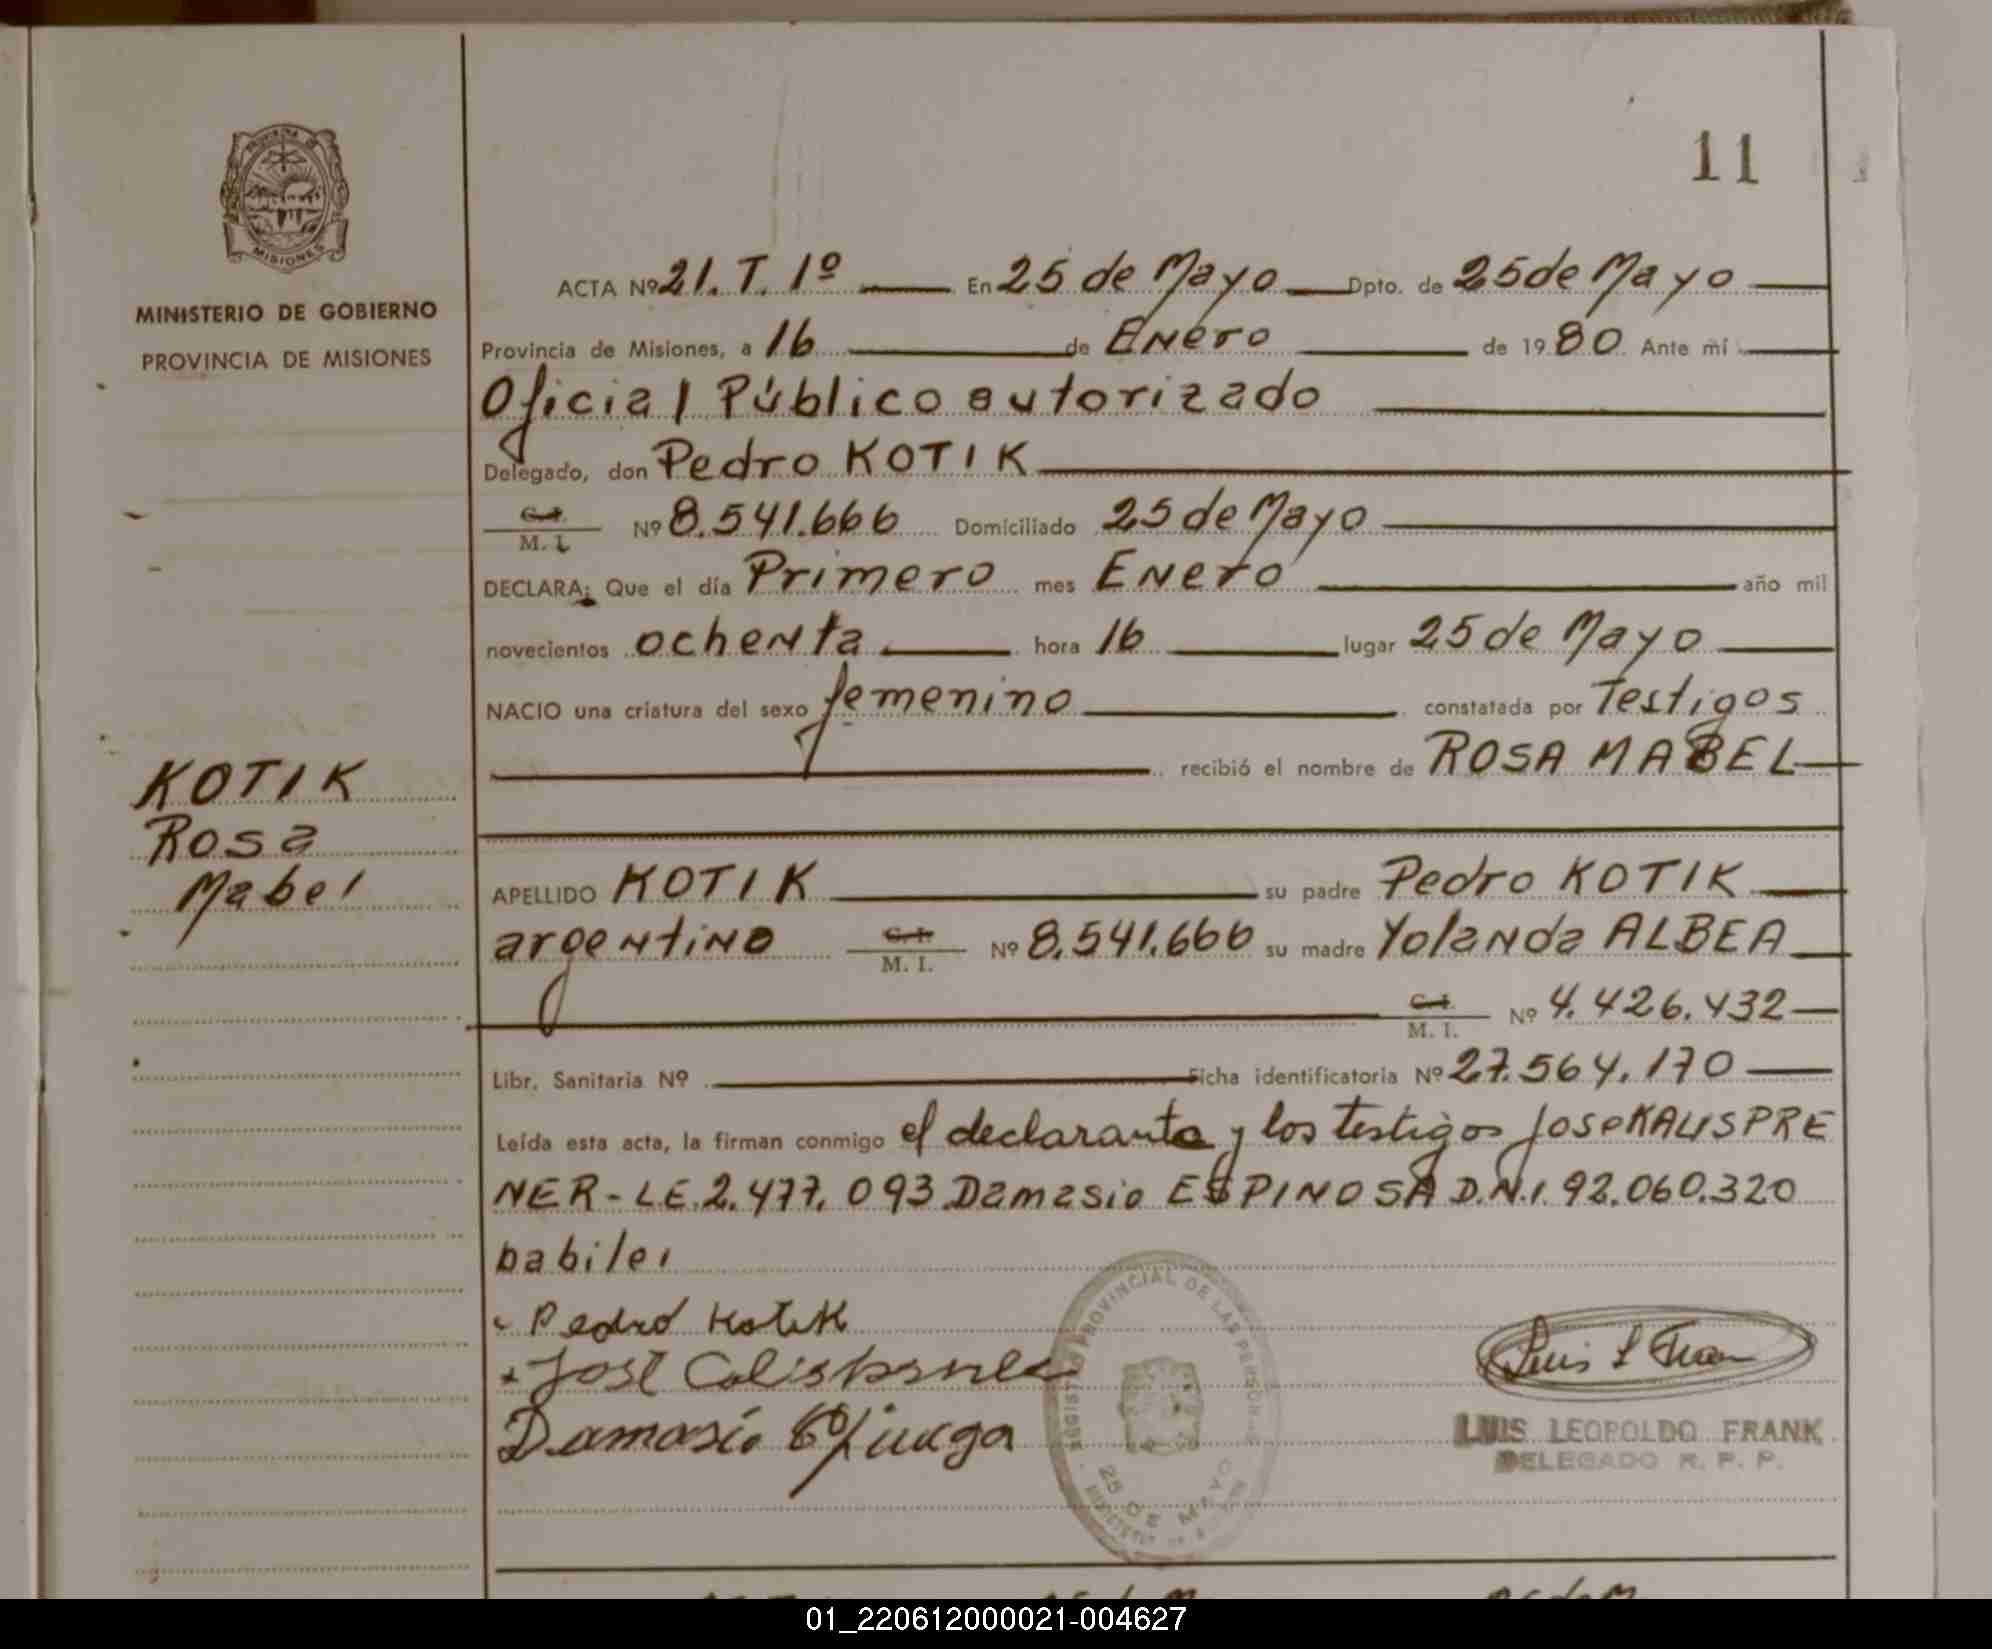 11
PROVINCIA DE
MISIONES
MINISTERIO DE GOBIERNO
PROVINCIA DE MISIONES
ACTA Nº 21. T. 1º En 25 de Mayo Dpto. de 25 de Mayo
Provincia de Misiones, a 16 de Enero de 1980. Ante mí
Oficial Público autorizado
Delegado, don Pedro KOTIK
C. I.
M. I. Nº 8.541.666 Domiciliado 25 de Mayo
DECLARA: Que el día Primero mes Enero año mil
novecientos ochenta hora 16 lugar 25 de Mayo
NACIO una criatura del sexo femenino constatada por Testigos
recibió el nombre de ROSA MABEL
KOTIK
Rosa
Mabel
APELLIDO KOTIK su padre Pedro KOTIK
argentino C. I.
M. I. Nº 8.541.666 su madre Yolanda ALBEA
C. I.
M. I. Nº 4.426.432
Libr. Sanitaria Nº Ficha identificatoria Nº 27.564.170
Leída esta acta, la firman conmigo el declarante y los testigos Jose KALISPRE
NER - LE. 2.477.093 Damasio ESPINOSA D.N.I. 92.060.320
Pedro Kotik
José
Damasio
Luis L Fran
REGISTRO PROVINCIAL DE LAS PERSONAS
25 DE MAYO
LUIS LEOPOLDO FRANK
DELEGADO R. P. P.
01_220612000021-004627